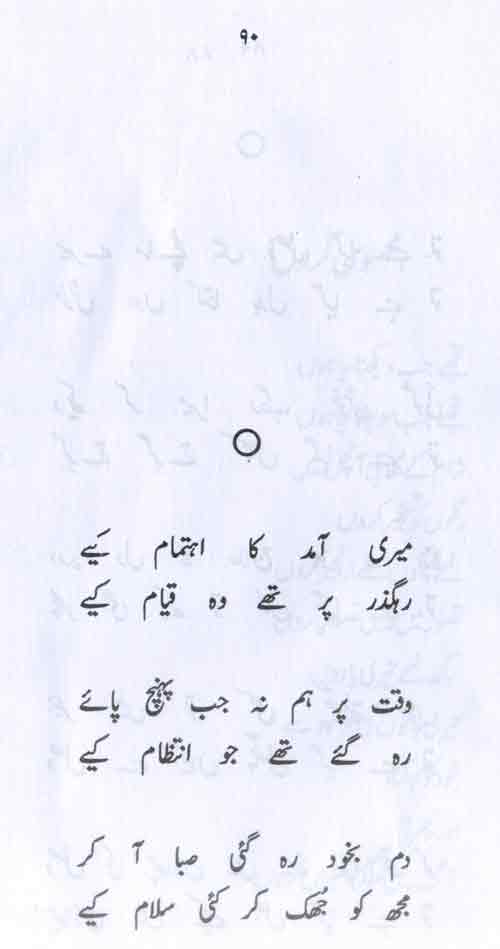 ۹۰
میری آمد کا اہتمام کیے
رہگذر پر تھے وہ قیام کیے
وقت پر ہم نہ جب پہنچ پائے
رہ گئے تھے جو انتظام کیے
دم بخود رہ گئی صبا آ کر
مجھ کو جُھک کر کئی سلام کیے